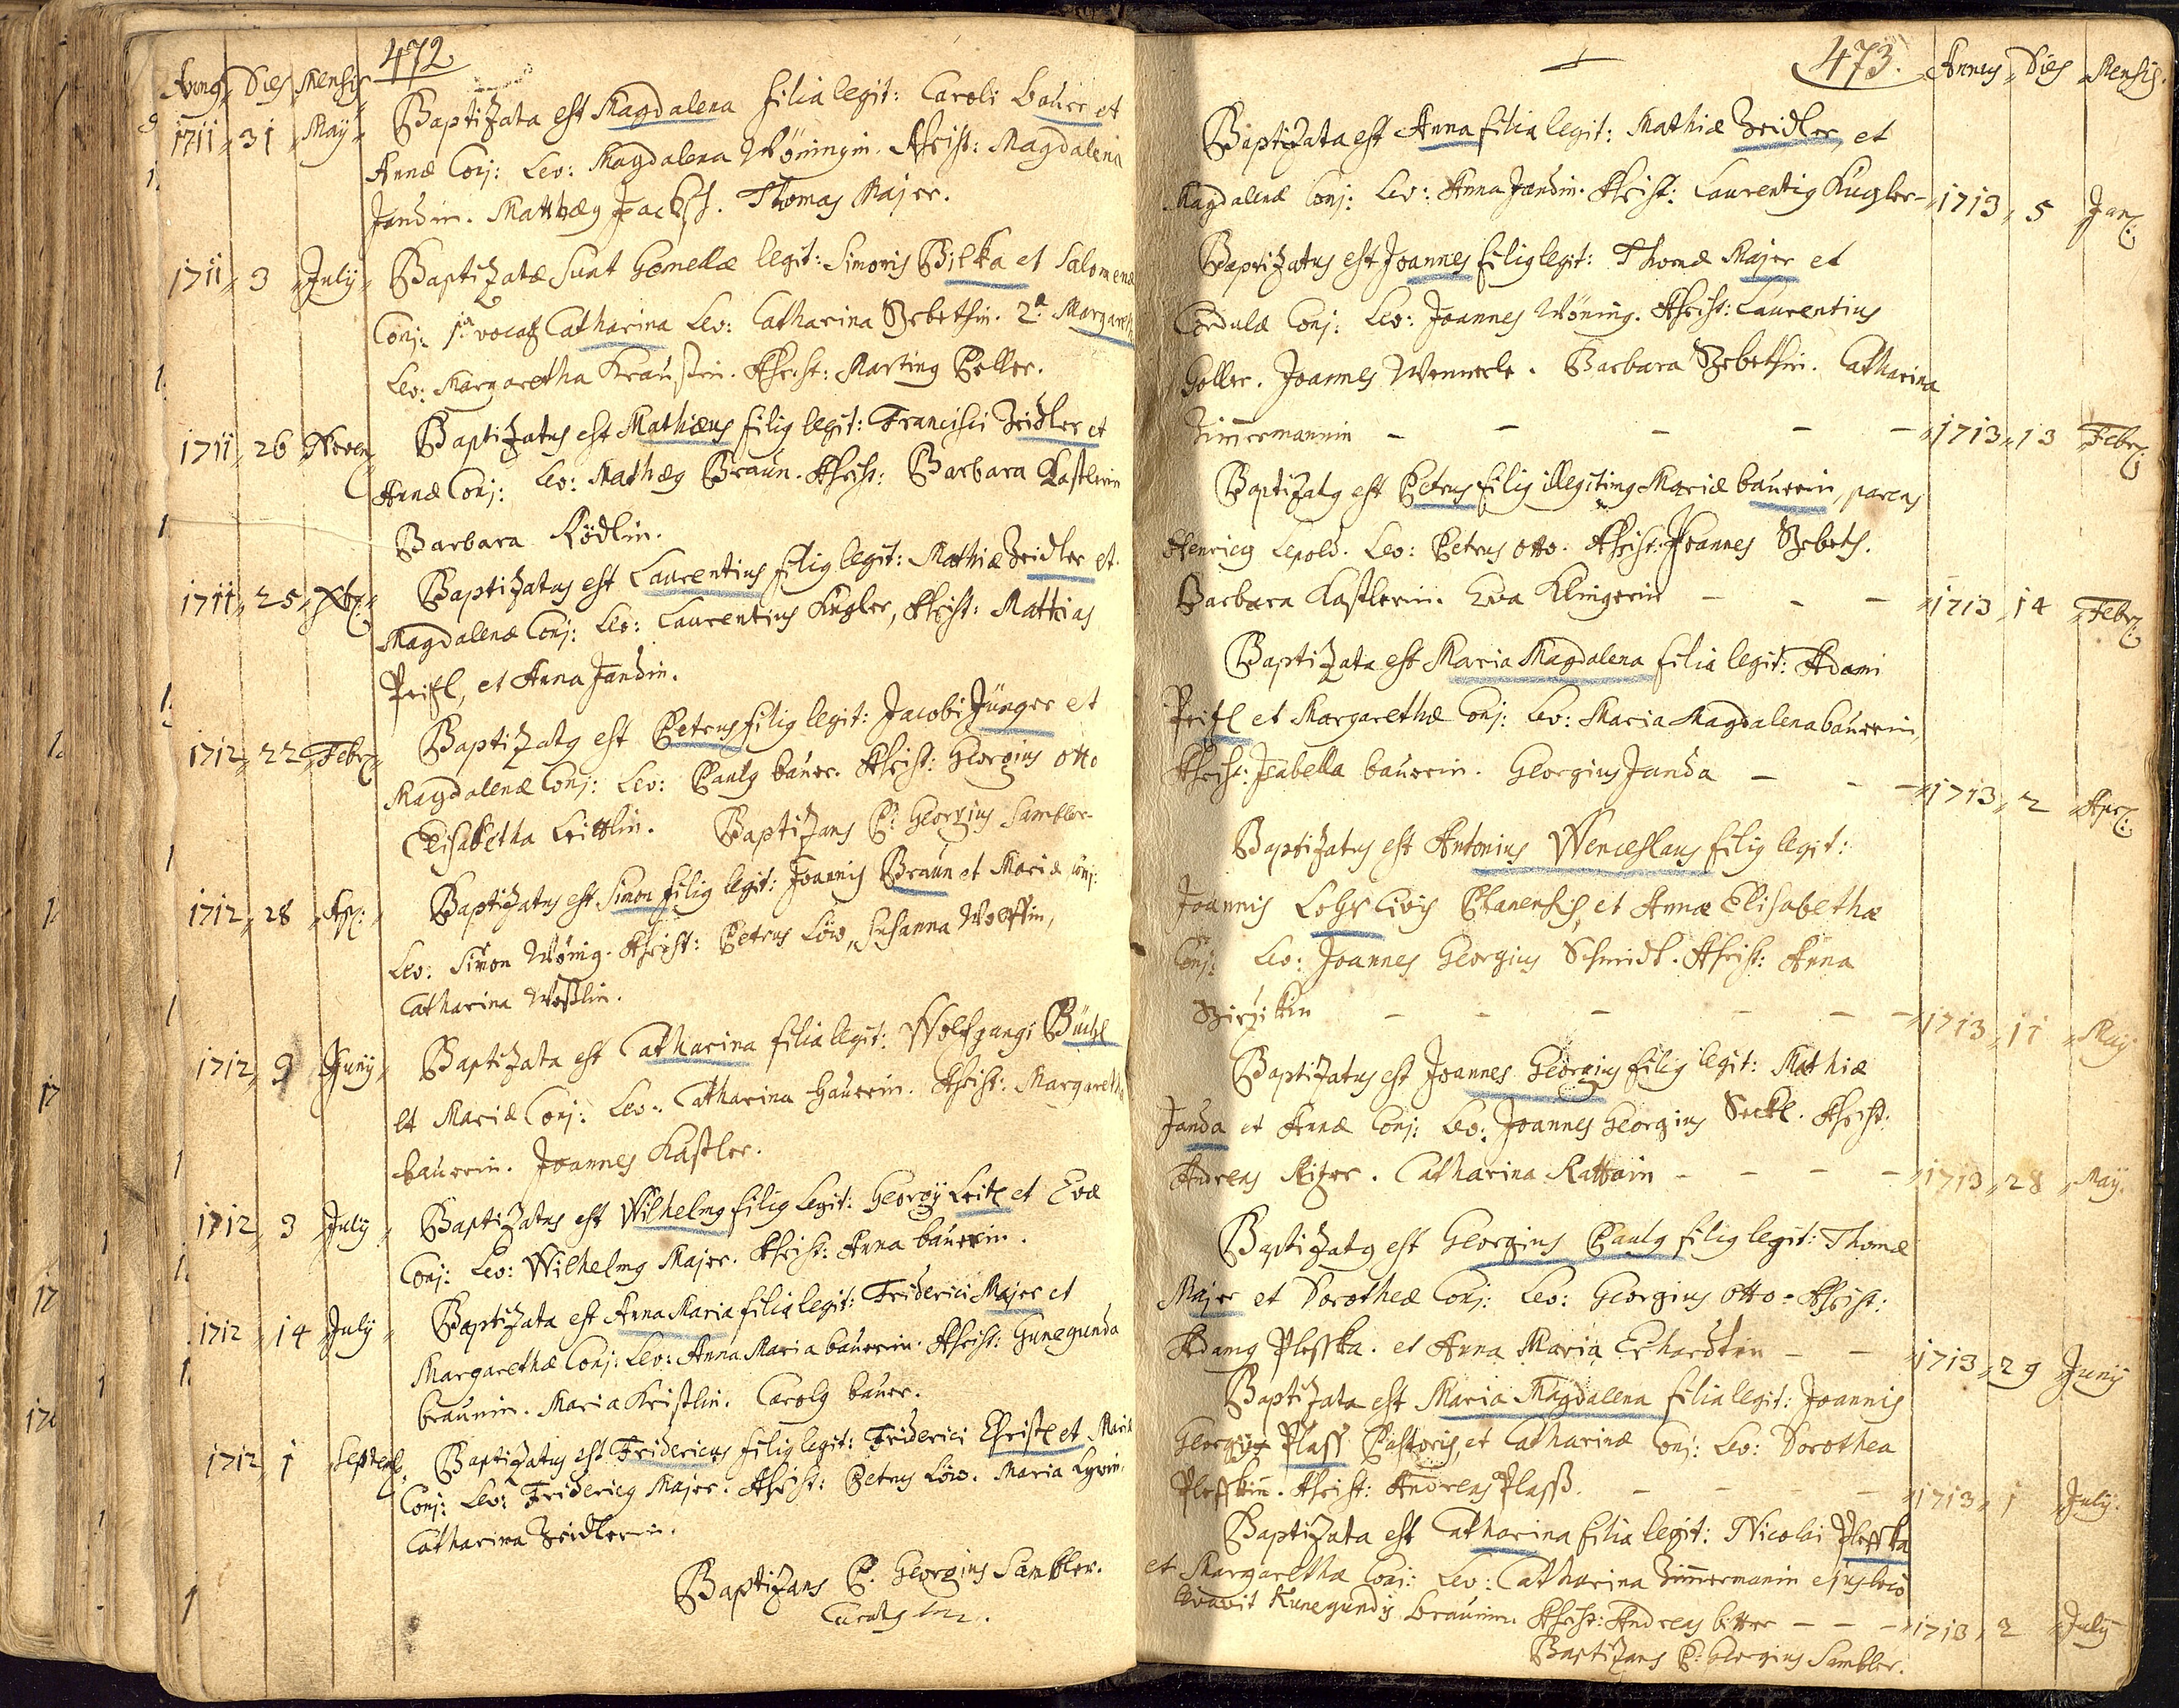 472
Annus Dies Mensis
1711 31 May Baptizata est Magdalena filia legit: Caroli Bauer et
Annæ Conj: Lev: Magdalena Wöningin. Christ: Magdalena
Jandin. Matthæus Thomas Majer.
1711 3 July Baptizatæ sunt Gemellæ legit: Simonis Bilka et Salomenæ
Conj: 1a vocat Catharina Lev: Catharina 2a Margareth
Lev: Margaretha Kraußin. Christ: Martinus Poller.
1711 26 Novem Baptizatus est Mathæus filius legit: Francisci Zeidler et
Annæ Conj: Lev: Mathæus Braun. Christ: Barbara Kastlerin
Barbara Ködlin.
1711 25 Xbr: Baptizatus est Laurentius filius legit: Mathiæ Zeidler et
Magdalenæ Conj: Lev: Laurentius Kugler, Christ: Mattias
et Anna Jandin.
1712 22 Febr: Baptizatus est Petrus filius legit: Jacobi Jünger et
Magdalenæ Conj: Lev: Paulus bauer. Christ: Georgius Otto
Elisabetha Baptizans P: Georgius Sambler
1712 28 Ap: Baptizatus est Simon filius legit: Joannis Braun et Mariæ conj:
Lev: Simon Wönig. Christ: Petrus Löw, Susanna Wolffin,
Catharina
1712 9 Juny Baptizata est Catharina filia legit: Wolfgangi
et Mariæ Conj: Lev: Catharina Christ: Margaretha
bauerin. Joannes Kastler.
1712 3 July Baptizatus est Wilhelmus filius legit: Georgij Leitl et Evæ
Conj: Lev: Wilhelmus Majer. Christ: Anna bauerin.
1712 14 July Baptizata est Anna Maria filia legit: Friderici Majer et
Margarethæ Conj: Lev: Anna Maria bauerin. Christ: Gunegunda
braunin. Maria Kristlin. Carolus bauer.
1712 1 Septemb. Baptizatus est Fridericus filius legit: Friderici Christl et Mariæ
Conj: Lev: Fridericus Majer. Christ: Petrus Löw. Maria
Catharina Zeidlerin.
Baptizans P: Georgius Sambler.
473.
Annus Dies Mensis
Baptizata est Anna filia legit: Mathiæ Zeidler, et
Magdalenæ Conj: Lev: Anna Jandin. Christ: Laurentius Kugler - 1713 5 Jan:
Baptizatus est Joannes filius legit: Thomæ Majer et
Cordulæ Conj: Lev: Joannes Wöning. Christ: Laurentius
Goller. Joannes Barbara Catharina
Zimmermannin - - - - - 1713 13 Febr:
Baptizatus est Petrus filius illegitimus Mariæ bauerin, parens
Henricus Lepold. Lev: Petrus Otto. Christ: Joannes
Barbara Kastlerin. Eva Klingerin - - - 1713 14 Febr:
Baptizata est Maria Magdalena filia legit: Adami
et Margarethæ Conj: Lev: Maria Magdalena bauerin,
Christ: Isabella bauerin. Georgius Janda - - - 1713 2 Apr:
Baptizatus est Antonius Wenceslaus filius legit:
Joannis civis Planensis, et Annæ Elisabethæ
Conj: Lev: Joannes Georgius Schmidt. Christ: Anna
- - - - - 1713 11 May
Baptizatus est Joannes Georgius filius legit: Mathiæ
Janda et Annæ Conj: Lev: Joannes Georgius Seckl. Christ:
Andreas Catharina - - - - 1713 28 May.
Baptizatus est Georgius Paulus filius legit: Thomæ
Majer et Dorotheæ Conj: Lev: Georgius Otto. Christ:
Adamus Plesska. et Anna Maria Erhardtin - - 1713 29 Juny
Baptizata est Maria Magdalena filia legit: Joannis
Georgij Plass Pastoris, et Catharinæ Conj: Lev: Dorothea
Plesskin. Christ: Andreas Plass. - - - 1713 1 July.
Baptizata est Catharina filia legit: Nicolai Plesska
et Margaretha Conj: Lev: Catharina Zimmermanin ejus loco
levavit Kunegundis braunin. Christ: Andreas bitter - - - 1713 2 July
Baptizans P: Georgius Sambler.